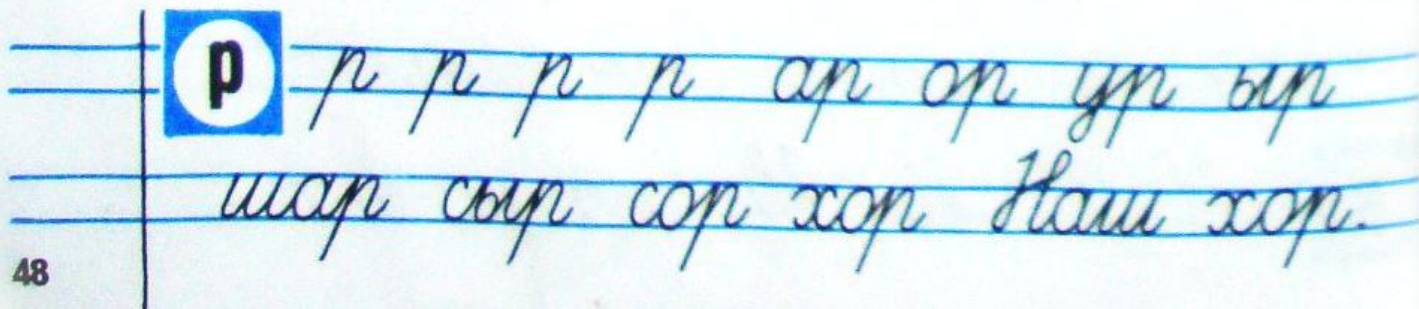 р р р р р ар ор ур ыр
шар сыр сор хор Наш хор.
48